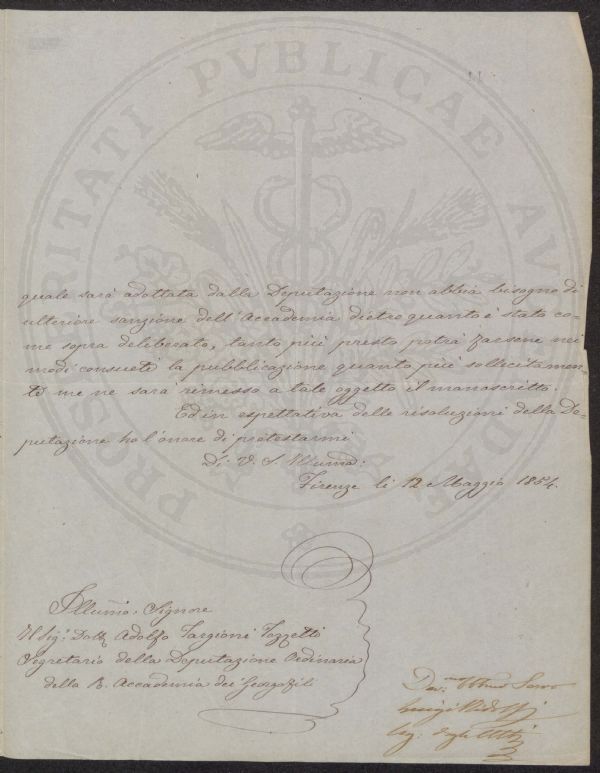 quale sarà adottata dalla Deputazione non abbia bisogno di
ulteriore sanzione dell'Accademia dietro quanto è stato co=
me sopra deliberato, tanto più presto potrà farsene nei
modi consueti la pubblicazione quanto più sollecitamen=
te me ne sarà rimesso a tale oggetto il manoscritto.
Ed in espettativa delle risoluzioni della De=
putazione ho l'onore di protestarmi
Di V. S. Illuma:
Firenze li 12 Maggio 1854.
Illumo: Signore
Il Sig: Dott Adolfo Targioni Tozzetti
Segretario della Deputazione Ordinaria
della R. Accademia dei Georgofili
Dev: Obbmo Servo
Luigi Ridolfi
Seg: degli Atti
PROSPERITATI PVBLICAE AVGENDAE